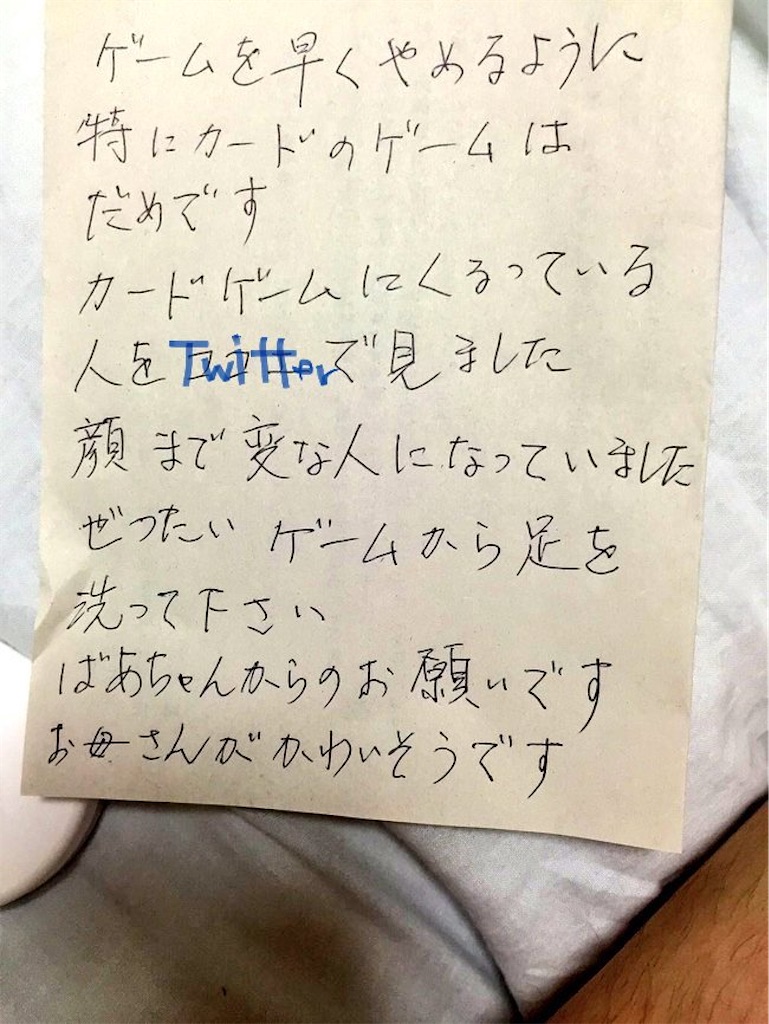 ゲームを早くやめるように
特にカードのゲームは
だめです
カードゲームにくるっている
人をTwitterで見ました
顔まで変な人になっていました
ぜったいゲームから足を
洗って下さい
ばあちゃんからのお願いです
お母さんがかわいそうです